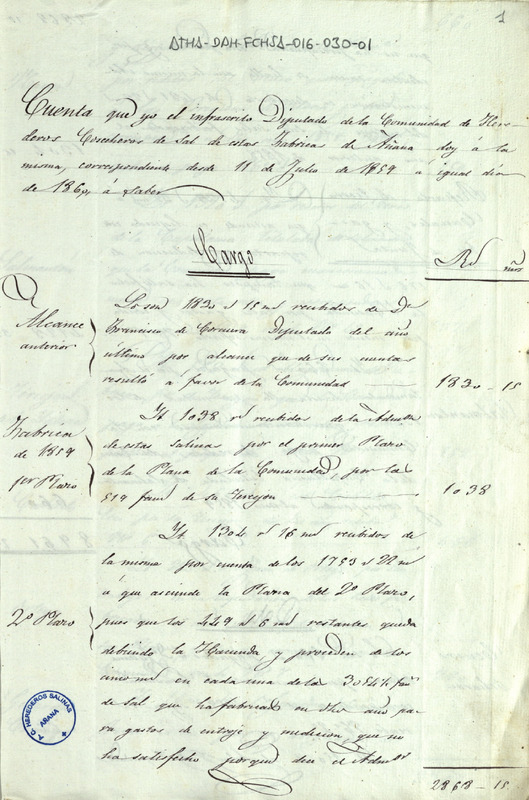 1
ATHA-DAH-FCHSA-016-030-01
Cuenta que yo el infrascrito Diputado de la Comunidad de Here-
deros Cosecheros de Sal de estas Fabricas de Añana doy a la
misma, correspondiente desde 11 de Julio de 1859 a igual dia
de 1860, á saber
Cargo
Rs ms
Alcance
anterior
Lo son 1830 rs 15 ms recibidos de Dn
Francisco de Diputado del año
último por alcance que de sus cuentas
resultó á favor de la Comunidad 1830-15
Fabrica
de 1859
pr Plazo
It 1038 rs recibidos de la Admon
de estas salinas por el primer Plazo
de la Plana de la Comunidad, por las
519 fans de su Terezon 1038
2º Plazo
It 1304 rs 16 ms recibidos de
la misma por cuenta de los 1753 rs 22 ms
á que asciende la Plana del 2º Plazo,
pues que los 449 rs 6 ms restantes queda
debiendo la Hacienda y proceden de los
cinco ms en cada una de las fans
de sal que ha fabricado en dho año pa-
ra gastos de entroje y medicion, que no
ha satisfecho porque dice el Admor
2868-15
A.C. HEREDEROS SALINAS
AÑANA